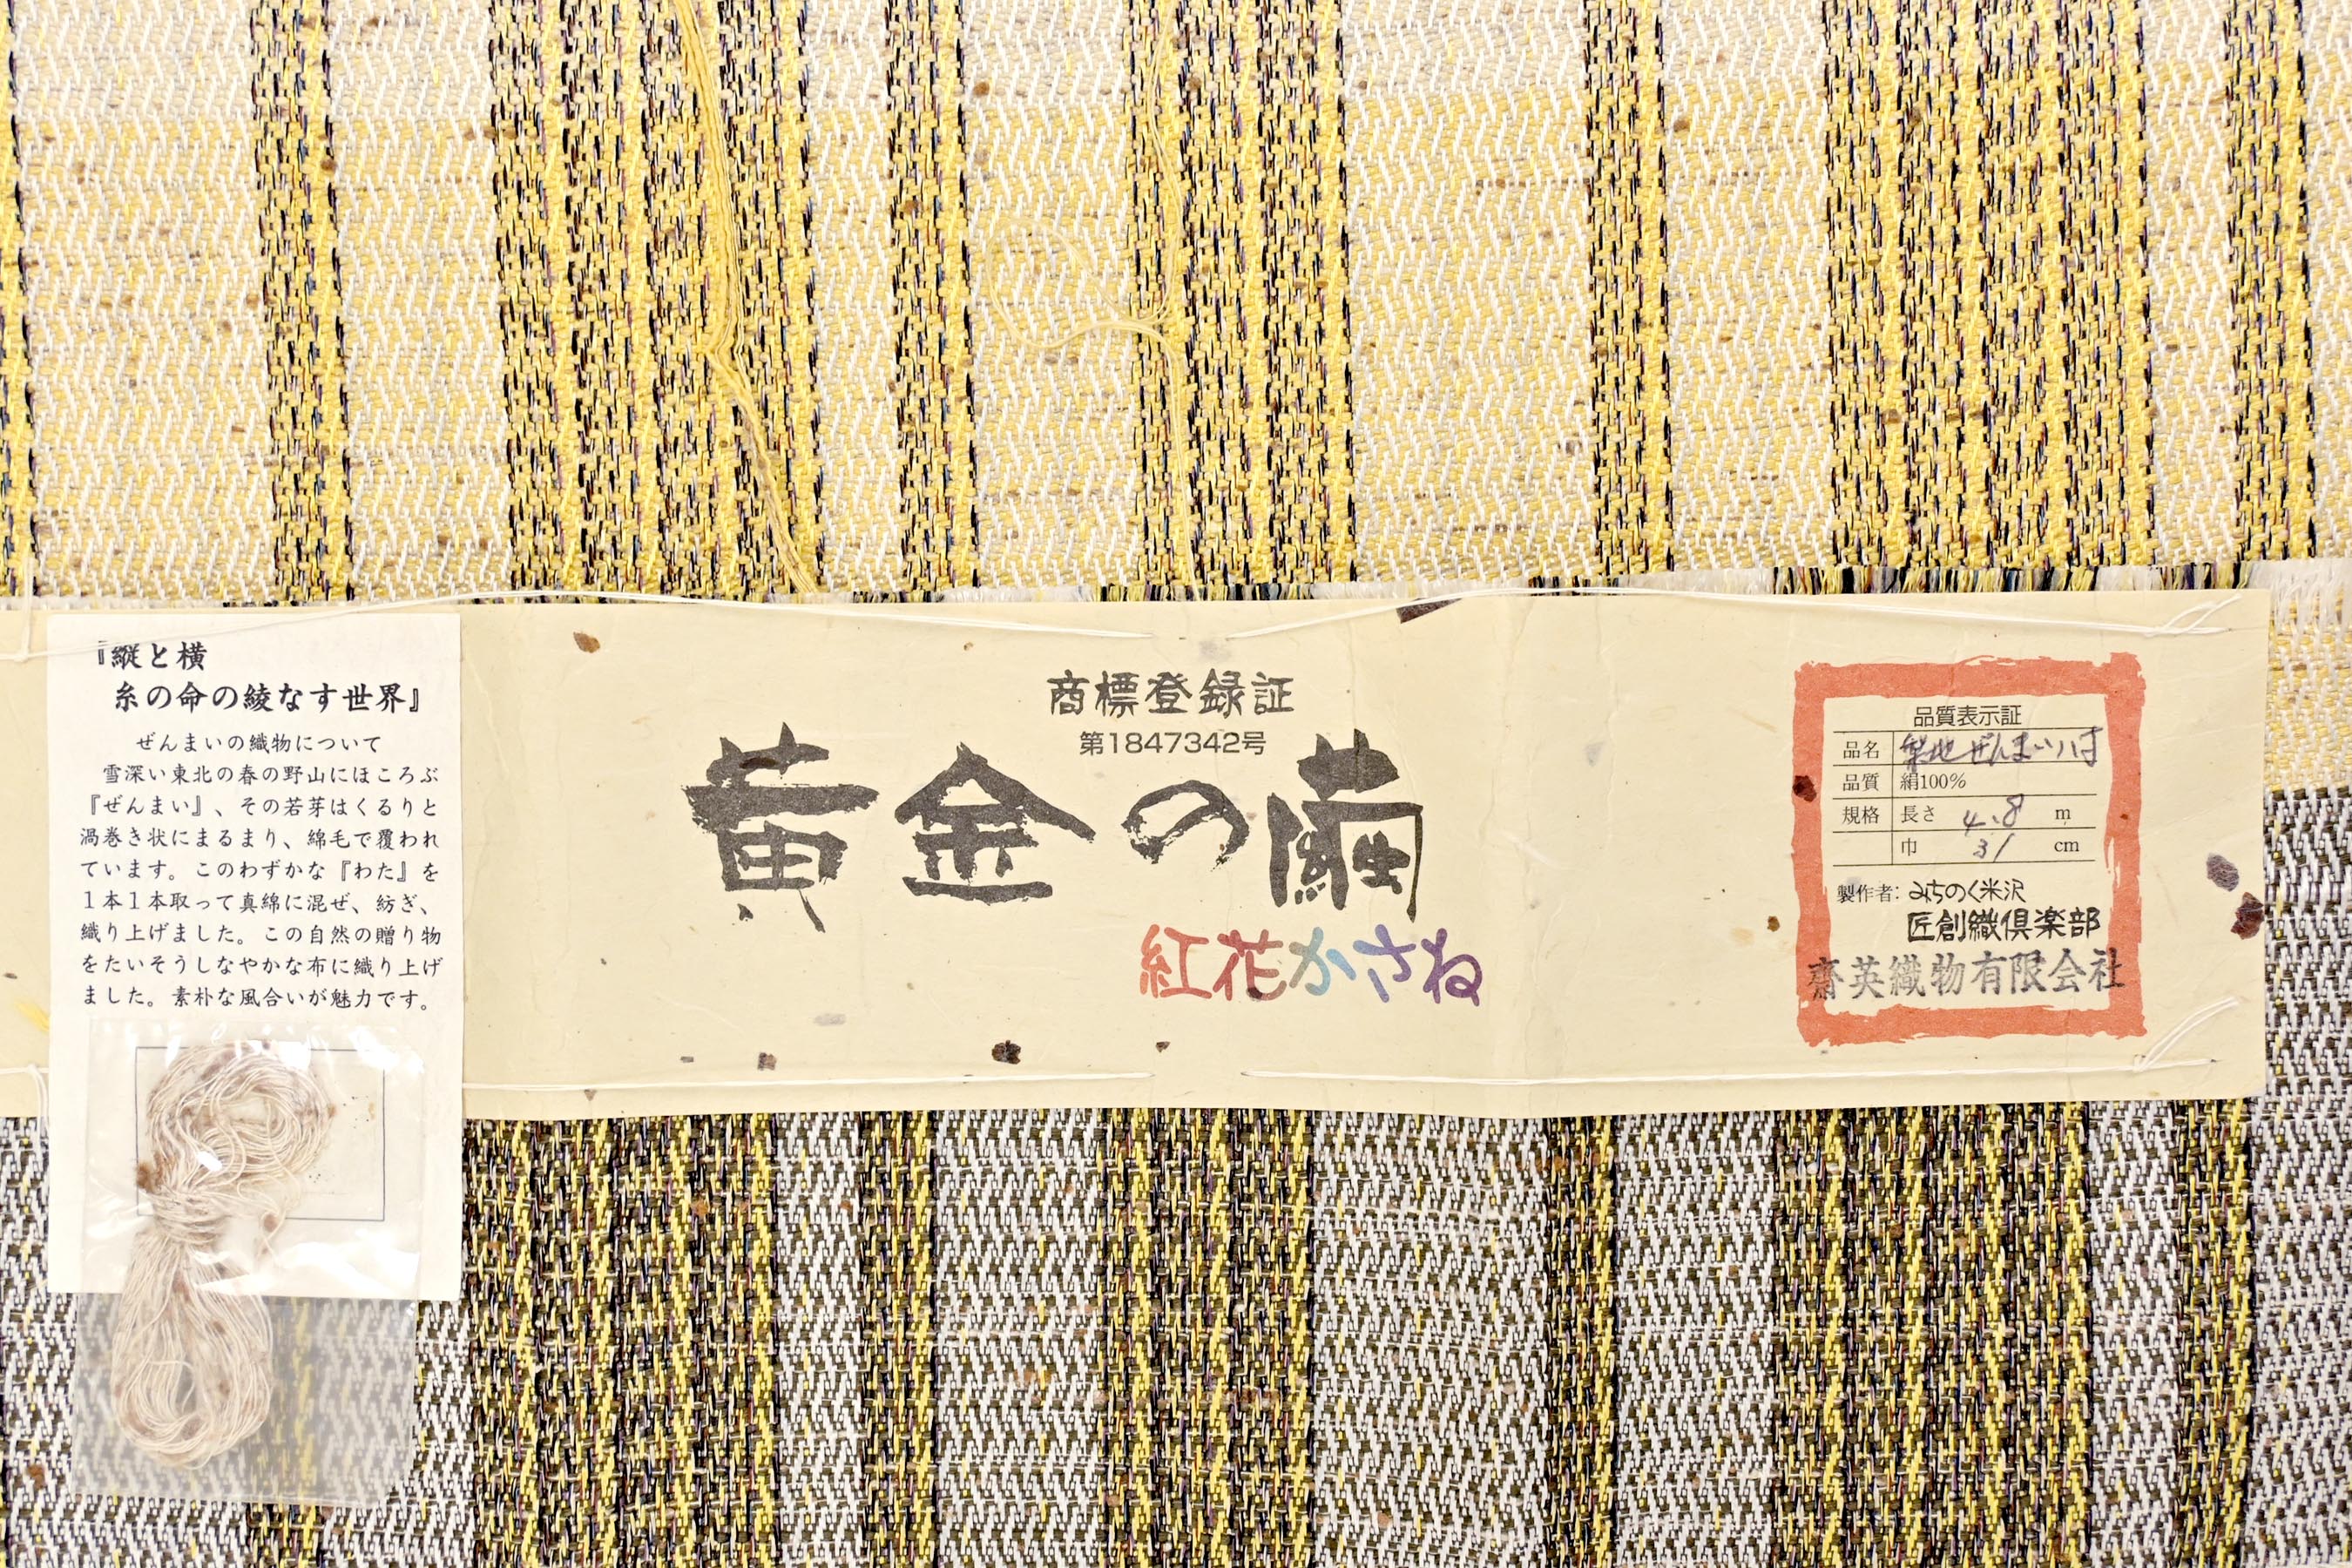 『縦と横
糸の命の綾なす世界』
ぜんまいの織物について
雪深い東北の春の野山にほころぶ
『ぜんまい』、その若芽はくるりと
渦巻き状にまるまり、綿毛で覆われ
ています。このわずかな『わた』を
1本1本取って真綿に混ぜ、紡ぎ、
織り上げました。この自然の贈り物
をたいそうしなやかな布に織り上げ
ました。素朴な風合いが魅力です。
商標登録証
第1847342号
黄金の繭
紅花かさね
品質表示証
品名 梨地ぜんまい八寸
品質 絹100%
規格 長さ 4.8 m
巾 31 cm
製作者: みちのく米沢
匠創織倶楽部
齋英織物有限会社